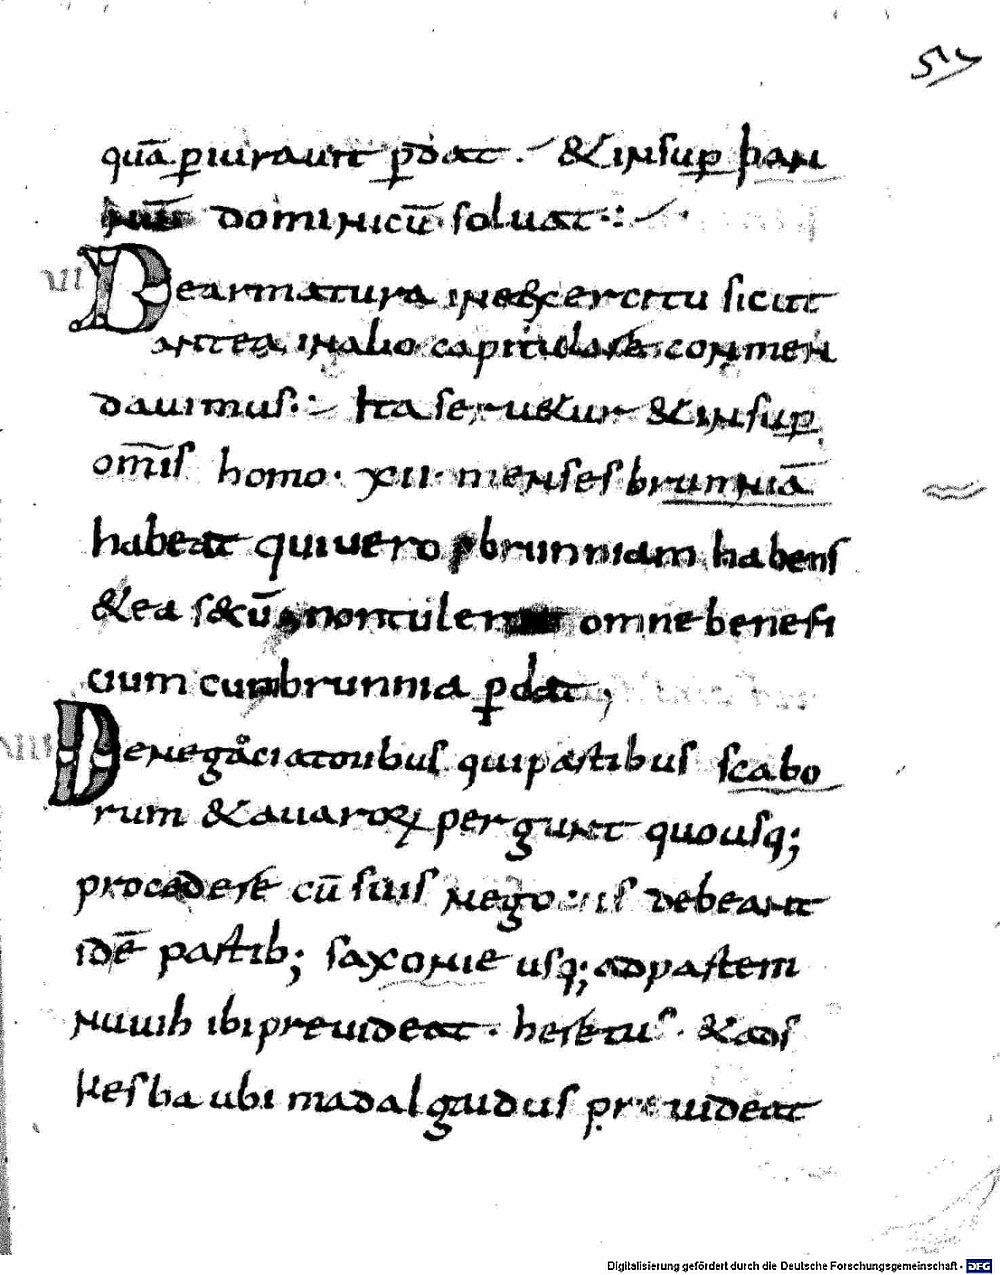 57
quā ꝑiurauit ꝑdat · & insuꝑ ban
num dominicū soluat ·:
VI De armatura in exercitu sicut
antea in alio capitulare conmen
dauimus ·: Ita seruetur & insuꝑ
om̄is homo · xii · menses brunniā
habeat qui uero brunniam habens
& ea secū non tulerit omne benefi
cium cum brunnia ꝑdat ;
VIII De negaciatoribus qui partibus scabo
rum & auaroꝝ pergunt quousq;
procedere cū suis negociis debeant
idē partib; saxonie usq; ad partem
nuuih ibi preuideat · heretus · & ad s
kesba ubi madalgaudus preuideat
Digitalisierung gefördert durch die Deutsche Forschungsgemeinschaft - DFG